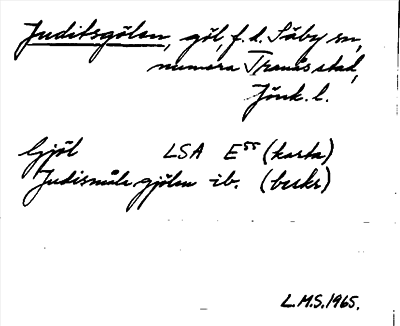 Juditsgölen, göl, f. d. Säby sn,
numera Tranås stad,
Jönk. l.
Gjöl LSA E55 (karta)
Judismåla gjölen ib. (beskr)
L.M.S. 1965.